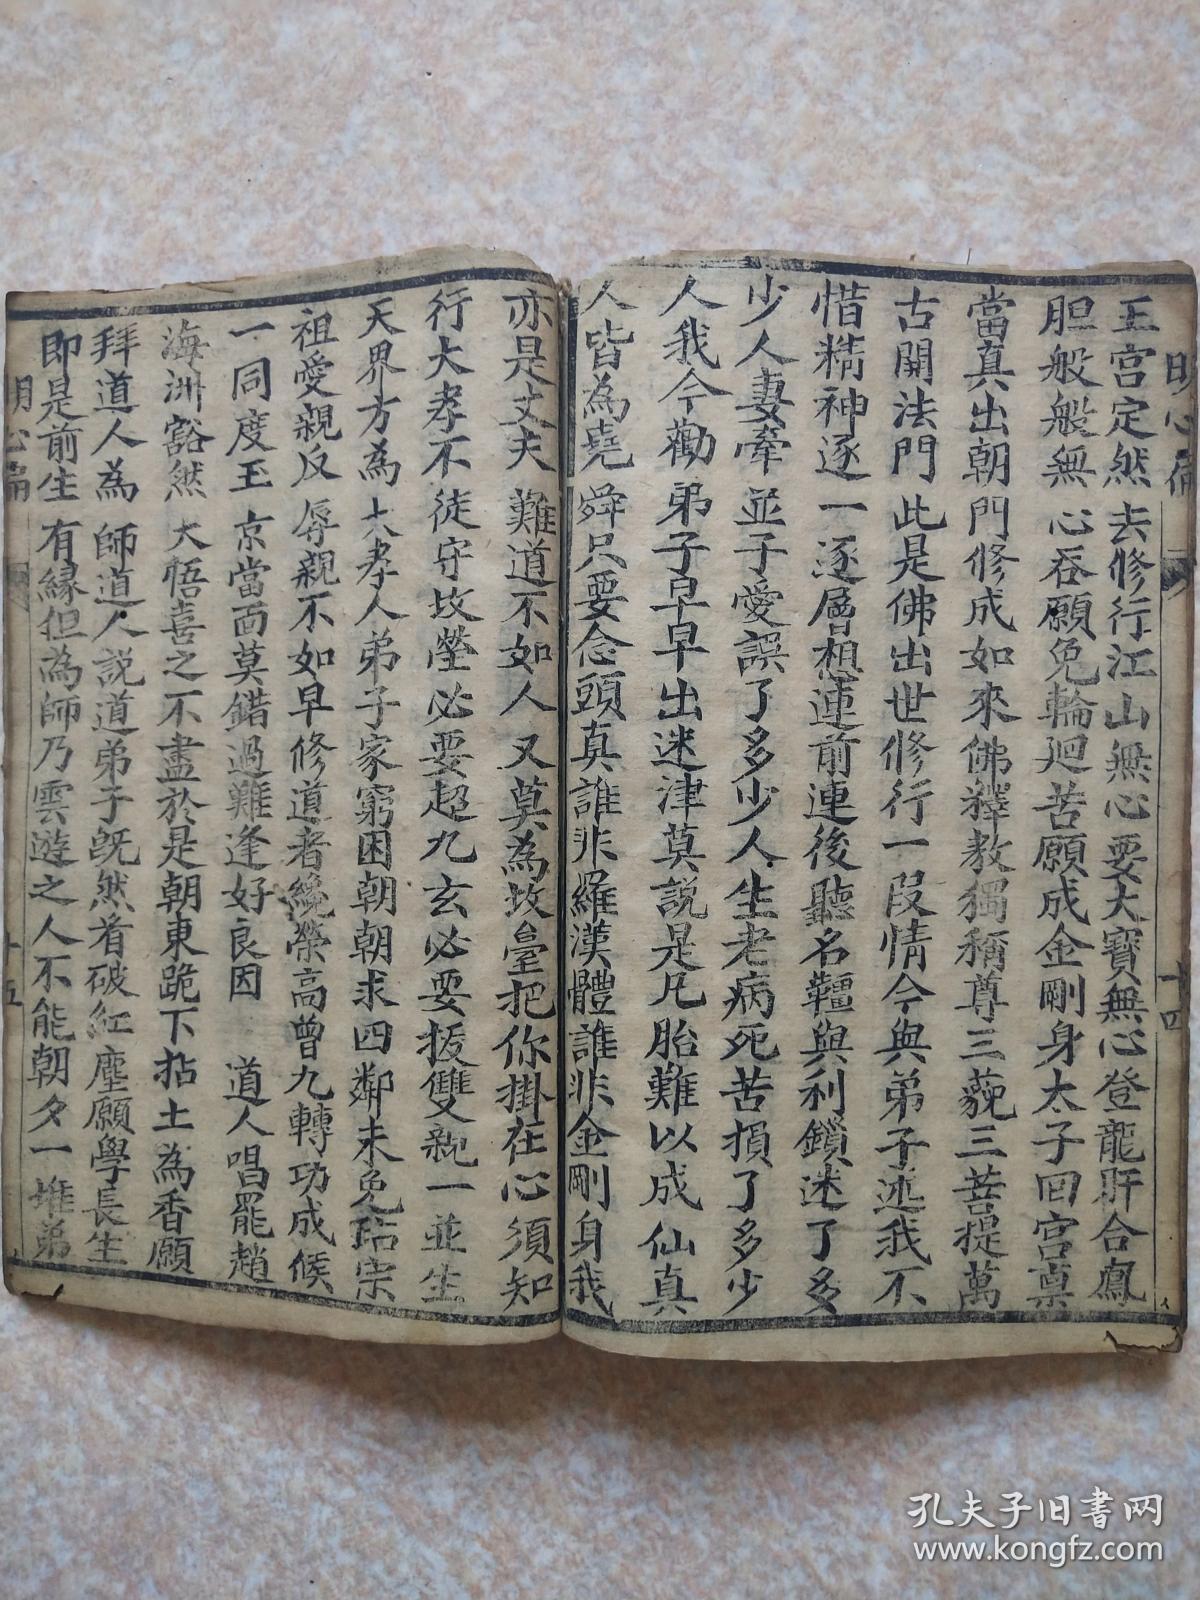 明心篇 十四
王宮定然去修行江山無心要大寶無心登龍肝合鳳
胆般般無心吞願免輪廻苦願成金剛身太子回宮禀
當真出朝門修成如來佛釋教獨稱尊三藐三菩提萬
古開法門此是佛出世修行一段情今與弟子述我不
惜精神逐一逐層想連前連後聽名韁與利鎖迷了多
少人妻牽並子愛誤了多少人生老病死苦損了多少
人我今勸弟子早早出迷津莫說是凡胎難以成仙真
人皆為堯舜只要念頭真誰非羅漢體誰非金剛身我
亦是丈夫難道不如人又莫為坟臺把你掛在心須知
行大孝不徒守坟塋必要超九玄必要拔雙親一並生
天界方為大孝人弟子家窮困朝朝求四鄰未免玷宗
祖愛親反辱親不如早修道者纔榮高曾九轉功成候
一同度玉京當面莫錯過難逢好良因 道人唱罷趙
海洲豁然大悟喜之不盡於是朝東跪下拈土為香願
拜道人為師道人説道弟子既然看破紅塵願學長生
即是前生有緣但為師乃雲遊之人不能朝夕一堆弟
明心篇 十五
孔夫子旧书网
www.kongfz.com